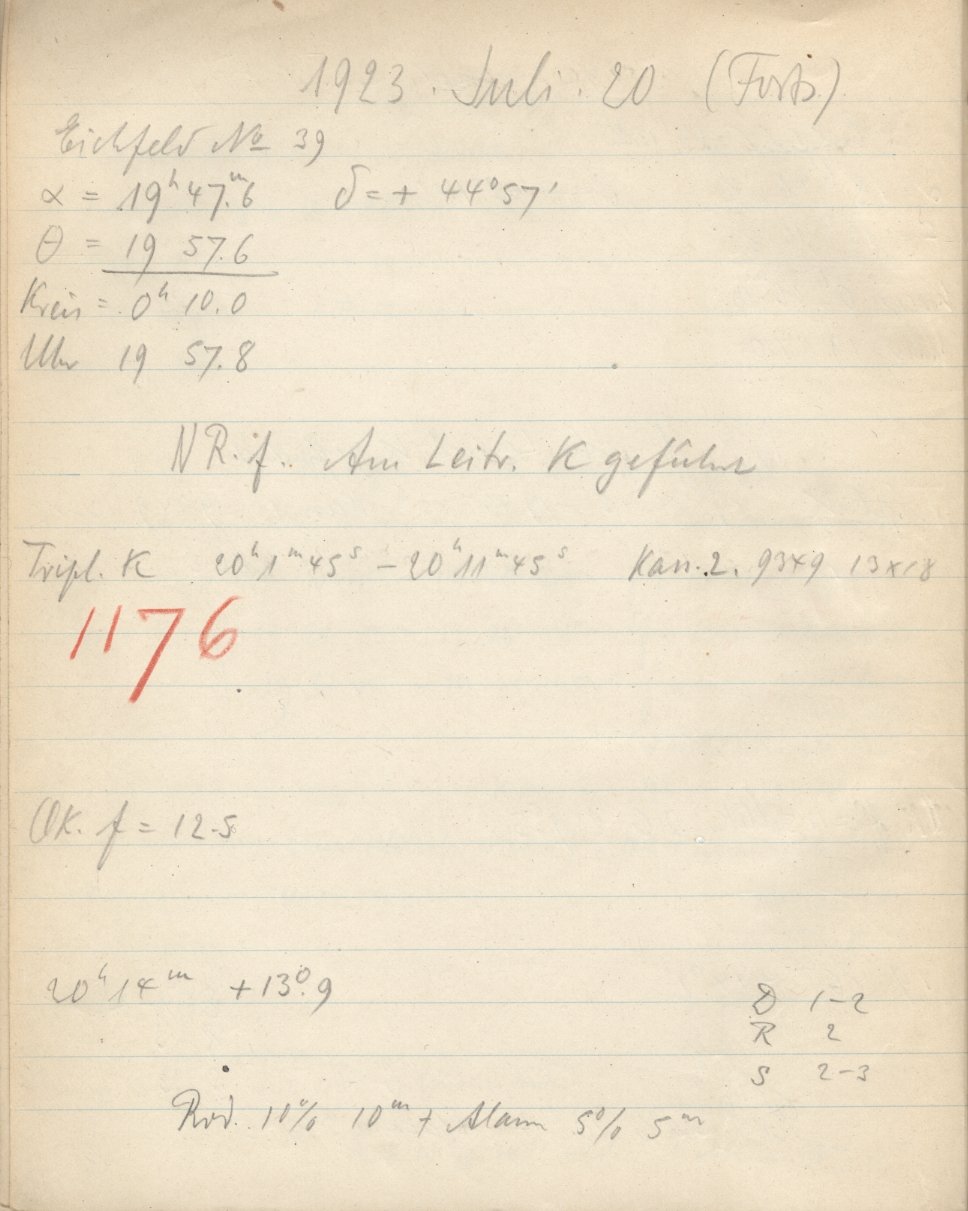 1923. Juli. 20 (Forts.)
Eichfeld No 39
α = 19h 47m.6 δ = + 44° 57'
θ = 19 57.6
Kreis = 0h 10.0
Uhr 19 57.8
NR. f. Am Leitr. K geführt
Tripl. K 20h 1m 45s – 20h 11m 45s Kass. 2. 9x9 13x18
1176
OK. f = 12.5
20h 14m +13°.9
D 1-2
R 2
S 2-3
Rod. 10% 10m + Alaun 5% 5m